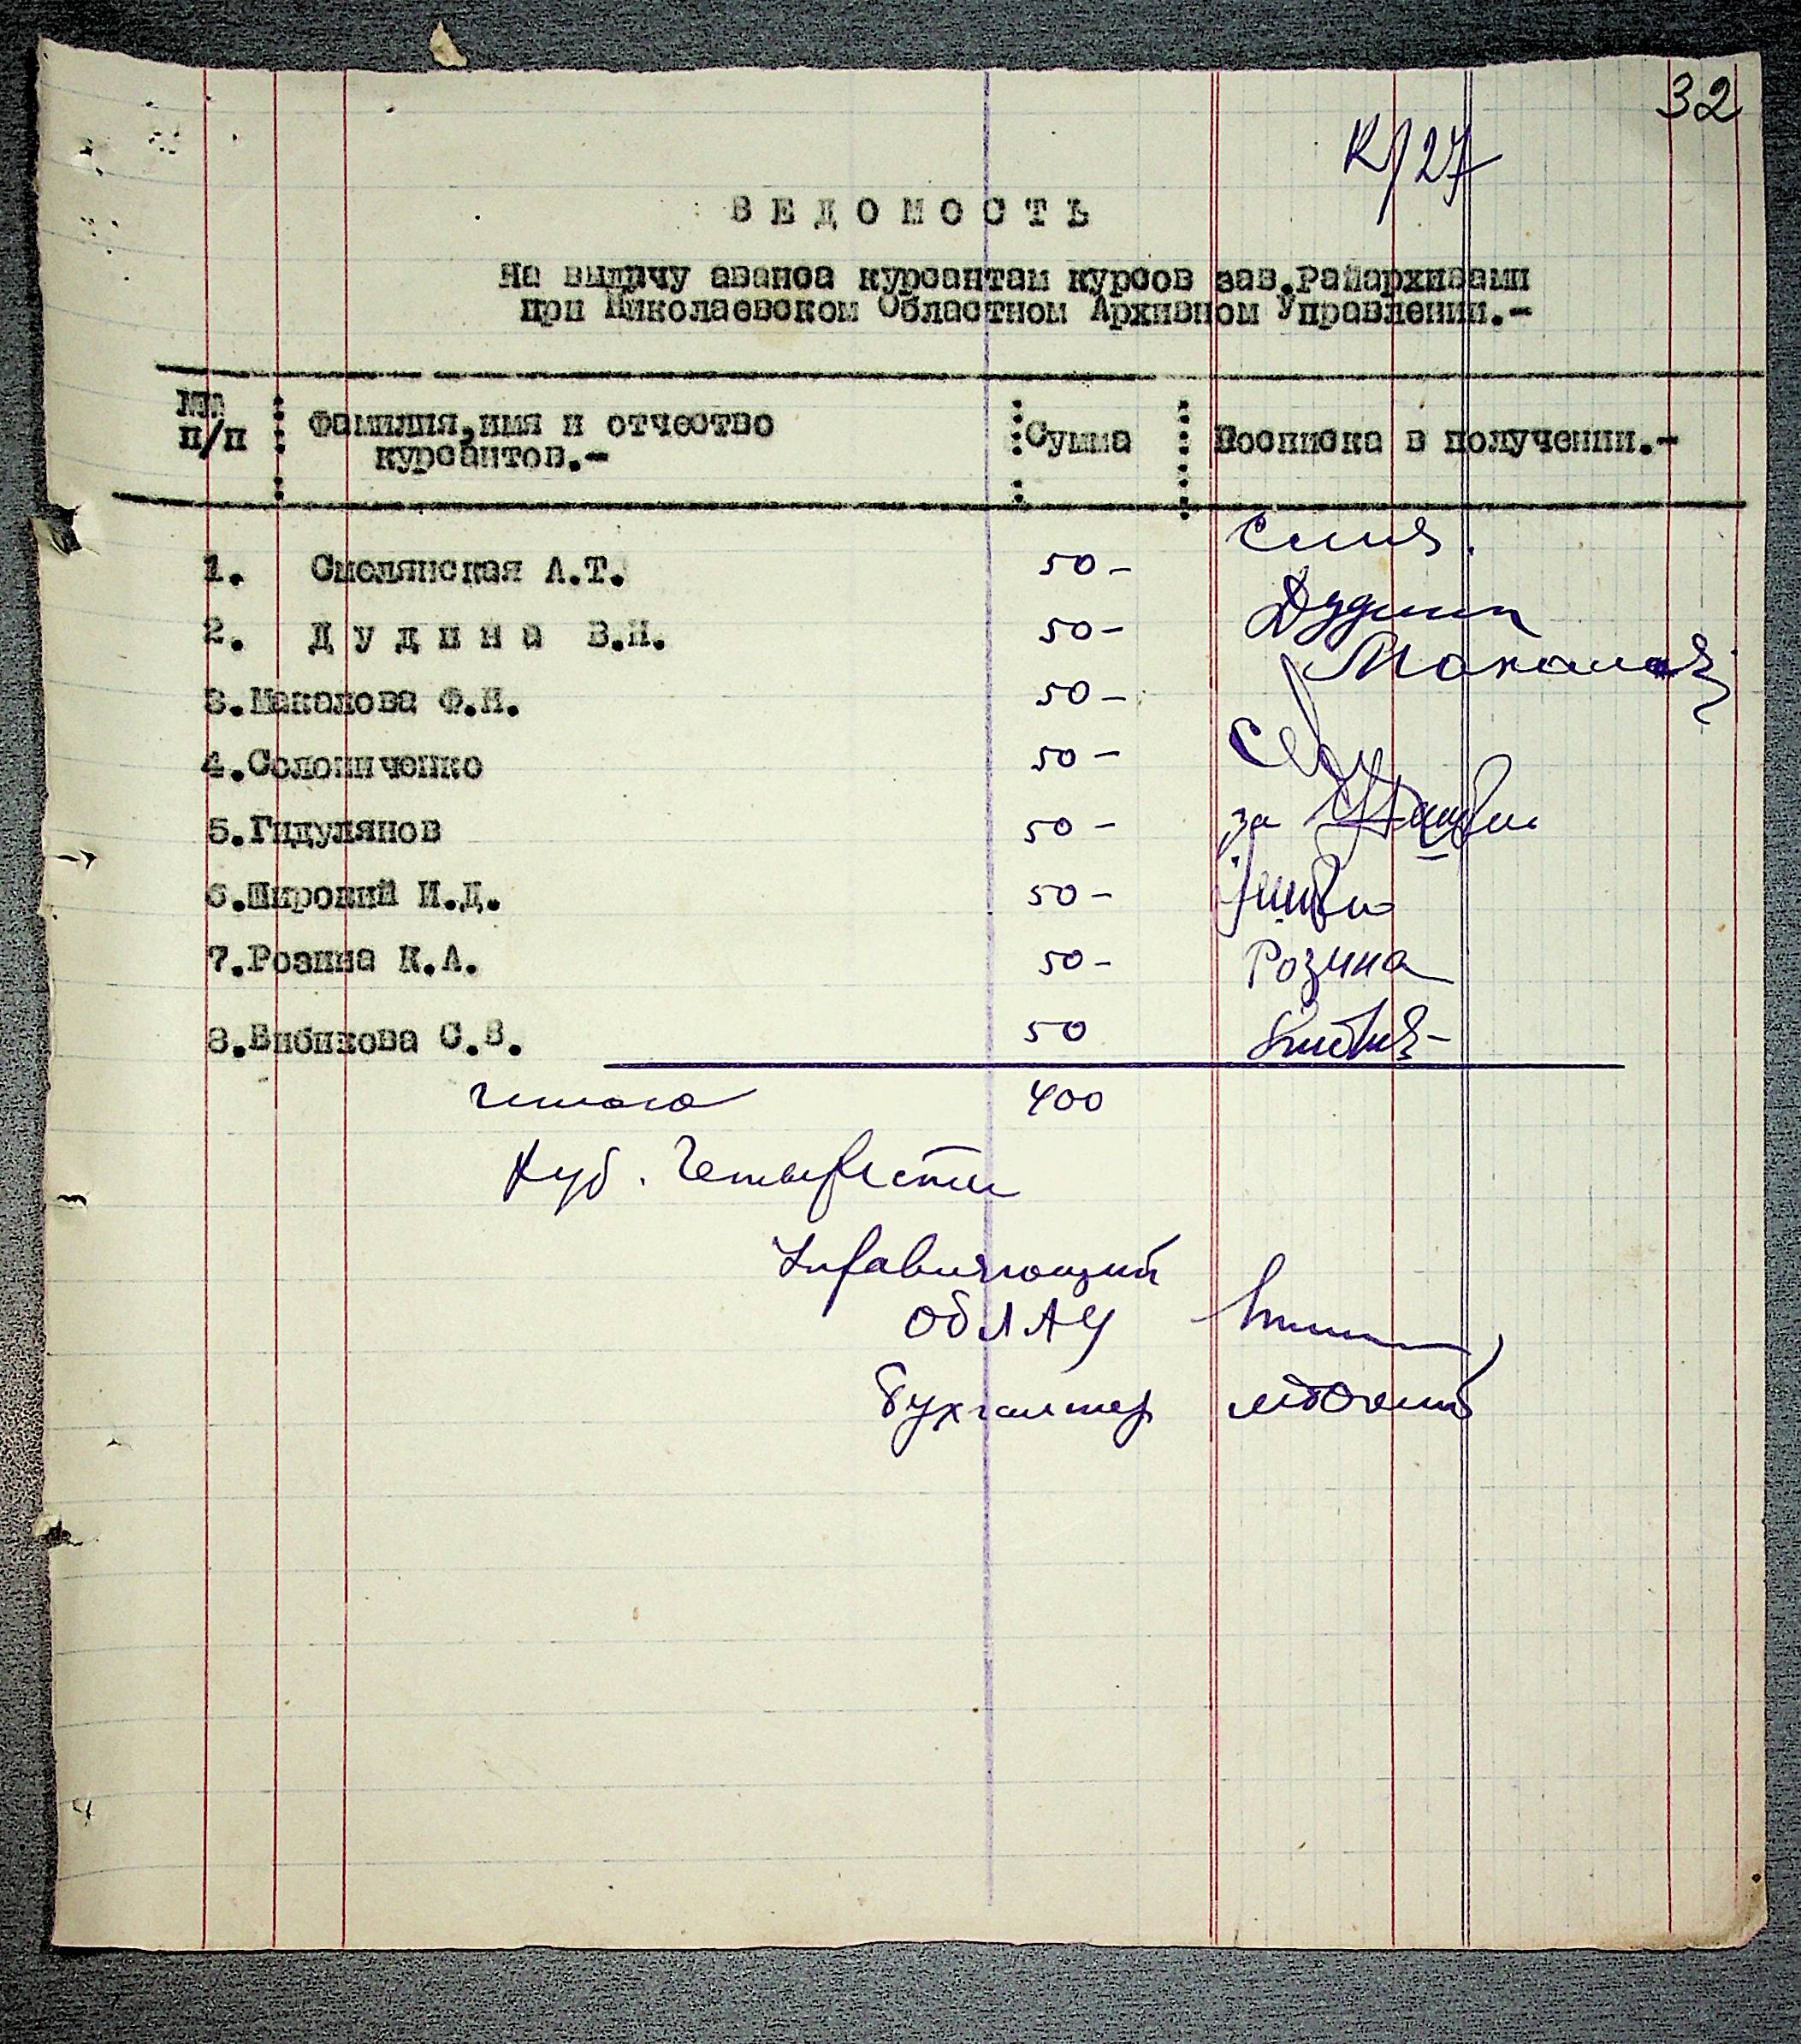 32
К/27
В Е Д О М О С Т Ь
На выдачу аванса курсантам курсов зав.Райархивами
при Николаевском Областном Архивном Управлении.-
№№ п/п : Фамилия,имя и отчество курсантов.- : Сумма : Росписка в получении.-
1. Смолянская А.Т. 50-
2. Д у д и н а В.Н. 50- Дудина
3.Макалова Ф.Н. 50- Макалова
4.Солониченко 50-
5.Гидулянов 50- за
6.Широкий И.Д. 50-
7.Розина К.А. 50- Розина
8.Бибикова С.В. 50
Итого 400
Руб. Четыреста
Управляющий
ОблАУ
Бухгалтер